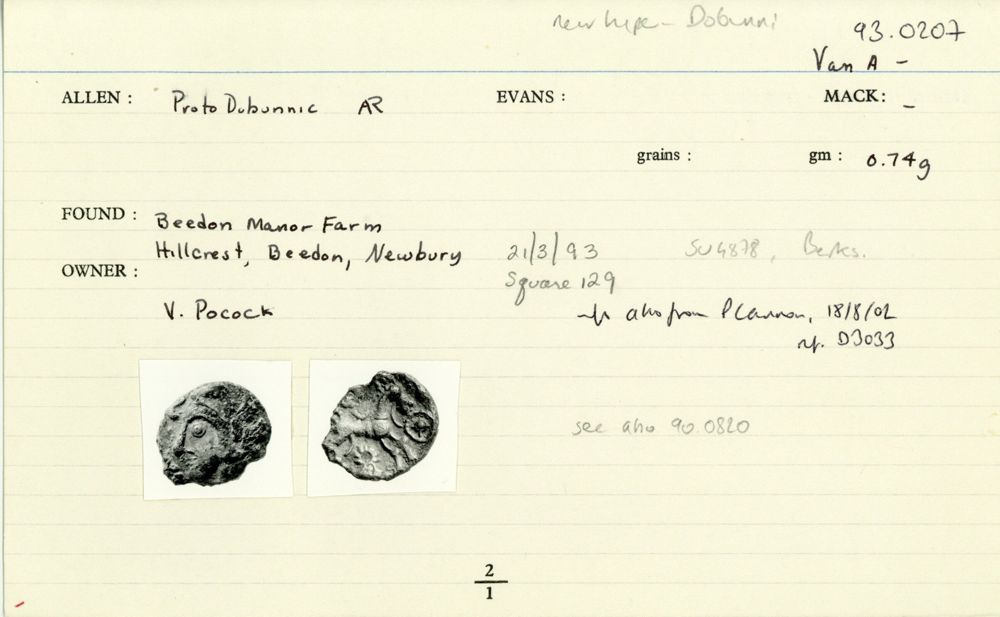 new type - Dobunni
93.0207
Van A -
ALLEN : Proto Dobunnic AR EVANS : MACK: -
grains : gm : 0.74g
FOUND : Beedon Manor Farm
Hillcrest, Beedon, Newbury 21/3/93 SU4878, Berks.
OWNER : Square 129
V. Pocock info also from P Cannon, 18/8/02
ref. D3033
see also 90.0820
2
1